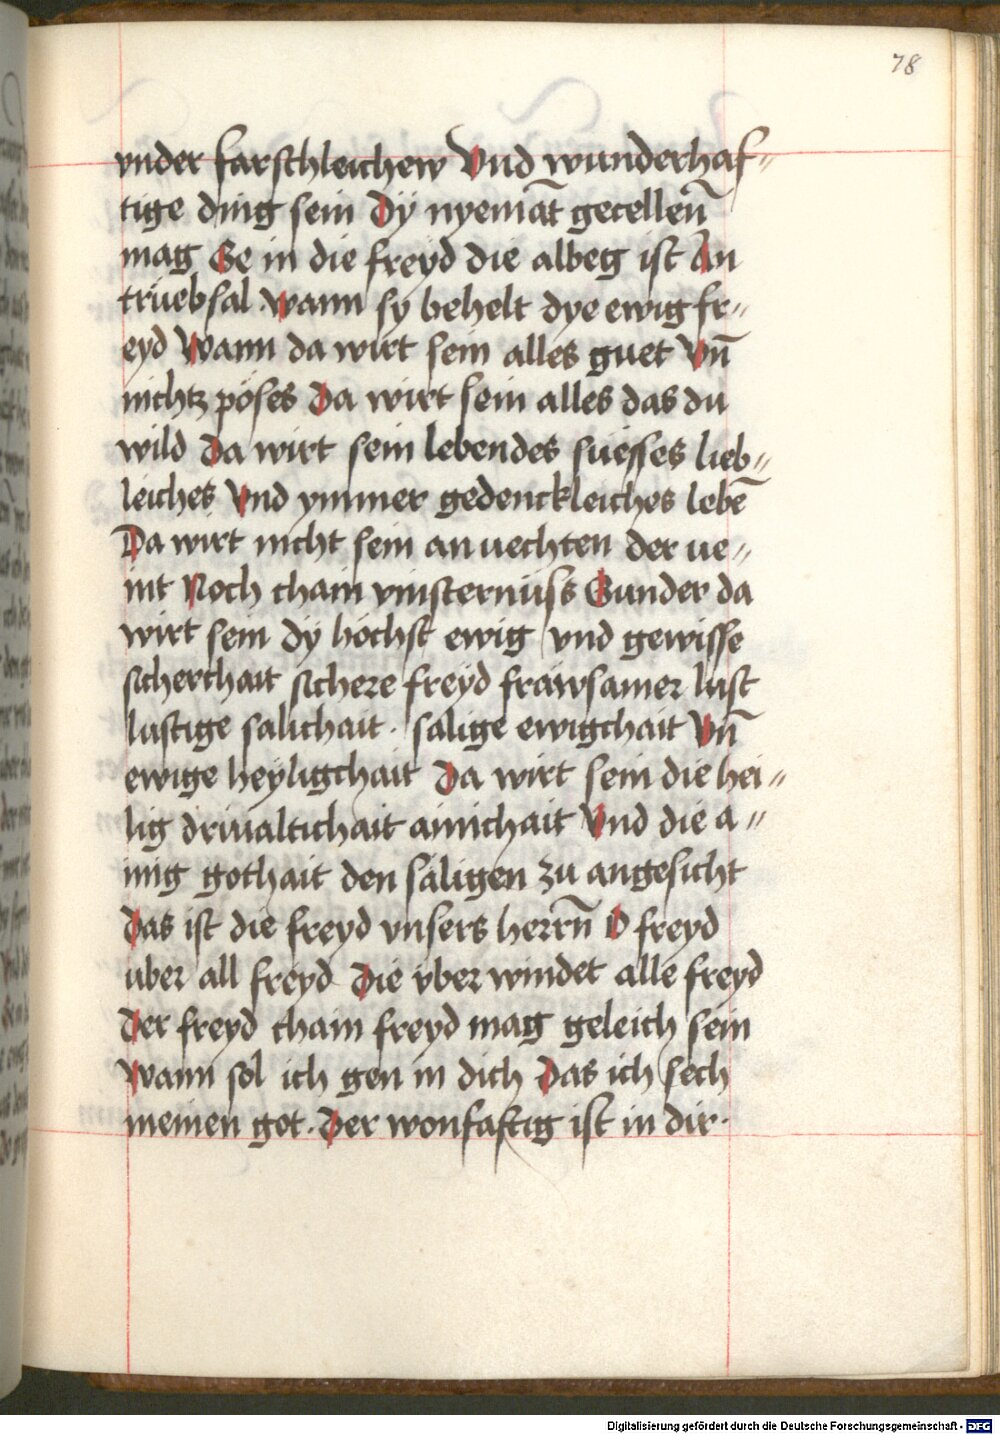 78
vnder farschleichew Vnd wunderhaf〃
tige ding sein Dÿ nyemāt geczellen̄
mag Ge in die freyd die albeg ist An
trüebsal Wann sy behelt dye ewig fr〃
eyd Wann da wirt sein alles guet Vn̄
nichtz pöses Da wirt sein alles das du
wild Da wirt sein lebendes süesses lieb〃
leiches Vnd ymmer gedenckleiches lebē
Da wirt nicht sein an uechten der ue〃
int Noch chain vinsternüss Sunder da
wirt sein dÿ höchst ewig vnd gewisse
sicherchait sichere freÿd fräwsamer lust
lustige salichait · sälige ewigchait Vn̄
ewige heyligchait Da wirt sein die hei〃
lig driualtichait ainichait Vnd die a〃
inig gothait den säligen zu angesicht
Das ist die freyd vnsers herrn̄ O freyd
uber all freyd Die vber windet alle freyd
Der freyd chain freyd mag geleich sein
Wann sol ich gen in dich Das ich sech
meinen got · Der wonhaftig ist in dir ·
Digitalisierung gefördert durch die Deutsche Forschungsgemeinschaft - DFG